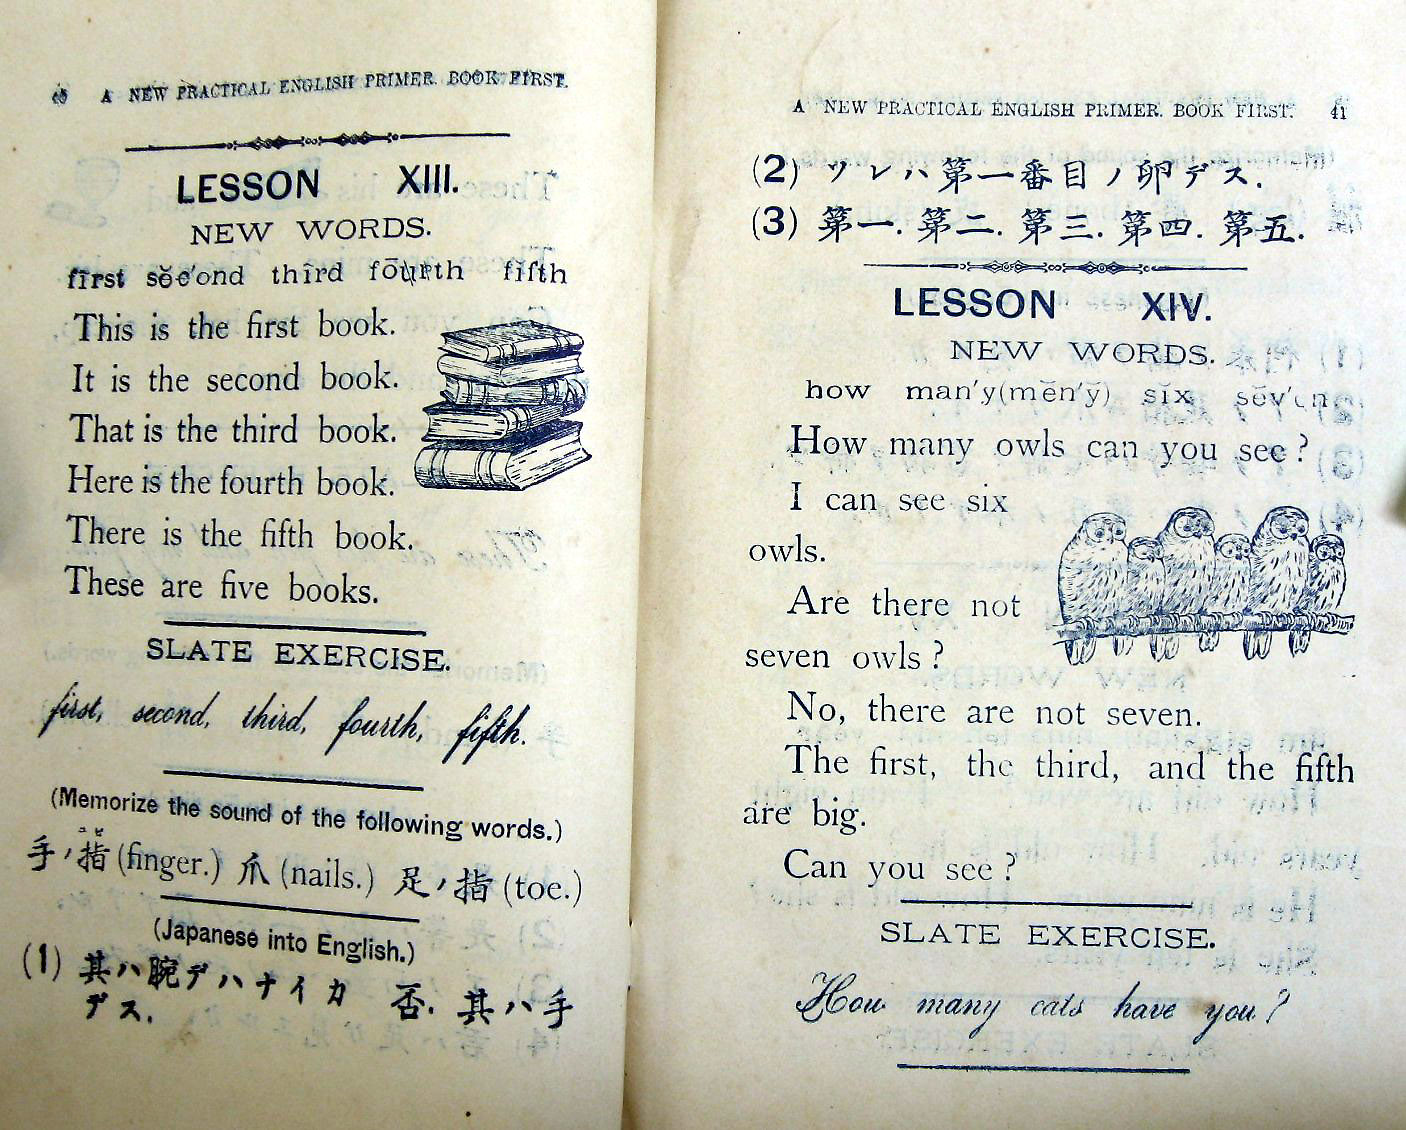 A NEW PRACTICAL ENGLISH PRIMER. BOOK FIRST.
LESSON XIII.
NEW WORDS.
fîrst sĕc'ond thîrd fōurth fifth
This is the first book.
It is the second book.
That is the third book.
Here is the fourth book.
There is the fifth book.
These are five books.
SLATE EXERCISE.
first, second, third, fourth, fifth.
(Memorize the sound of the following words.)
手ノ指 (finger.) 爪 (nails.) 足ノ指 (toe.)
(Japanese into English.)
(1) 其ハ腕デハナイカ 否. 其ハ手
デス.
A NEW PRACTICAL ENGLISH PRIMER. BOOK FIRST. 41
(2) ソレハ第一番目ノ卵デス.
(3) 第一. 第二. 第三. 第四. 第五.
LESSON XIV.
NEW WORDS.
how man'y(mĕn'y̆) sĭx sĕv'en
How many owls can you see?
I can see six
owls.
Are there not
seven owls?
No, there are not seven.
The first, the third, and the fifth
are big.
Can you see?
SLATE EXERCISE.
How many cats have you?